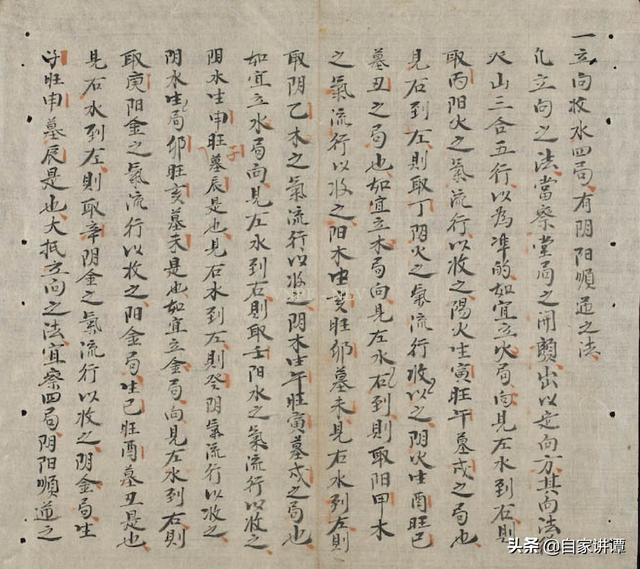 一立向收水四局有阴阳順逆之法
凡立向之法當察堂局之開顧出以定向方其向法
尺山三合五行以為准的如宜立火局向見左水到右則
取丙阳火之氣流行以收之陽火生寅旺午墓戌之局也
見右到左則取丁阴火之氣流行收以之阴火生酉旺巳
墓丑之局也如宜立木局向見左水右到則取阳甲木
之氣流行以收之阳木生亥旺卯墓未見右水到左則
取阴乙木之氣流行以收之阴木生午旺寅墓戌之局也
如宜立水局向見左水到右則取壬阳水之氣流行以收之
阳水生申旺子墓辰是也見右水到左則癸阴氣流行以收之
阴水生局卯旺亥墓未是也如宜立金局向見左水到右則
取庚阳金之氣流行以收之阳金局生巳旺酉墓丑是也
見右水到左則取辛阴金之氣流行以收之阴金局生
子旺申墓辰是也大抵立向之法宜察四局阴阳順逆之
头条 @自家讲谭